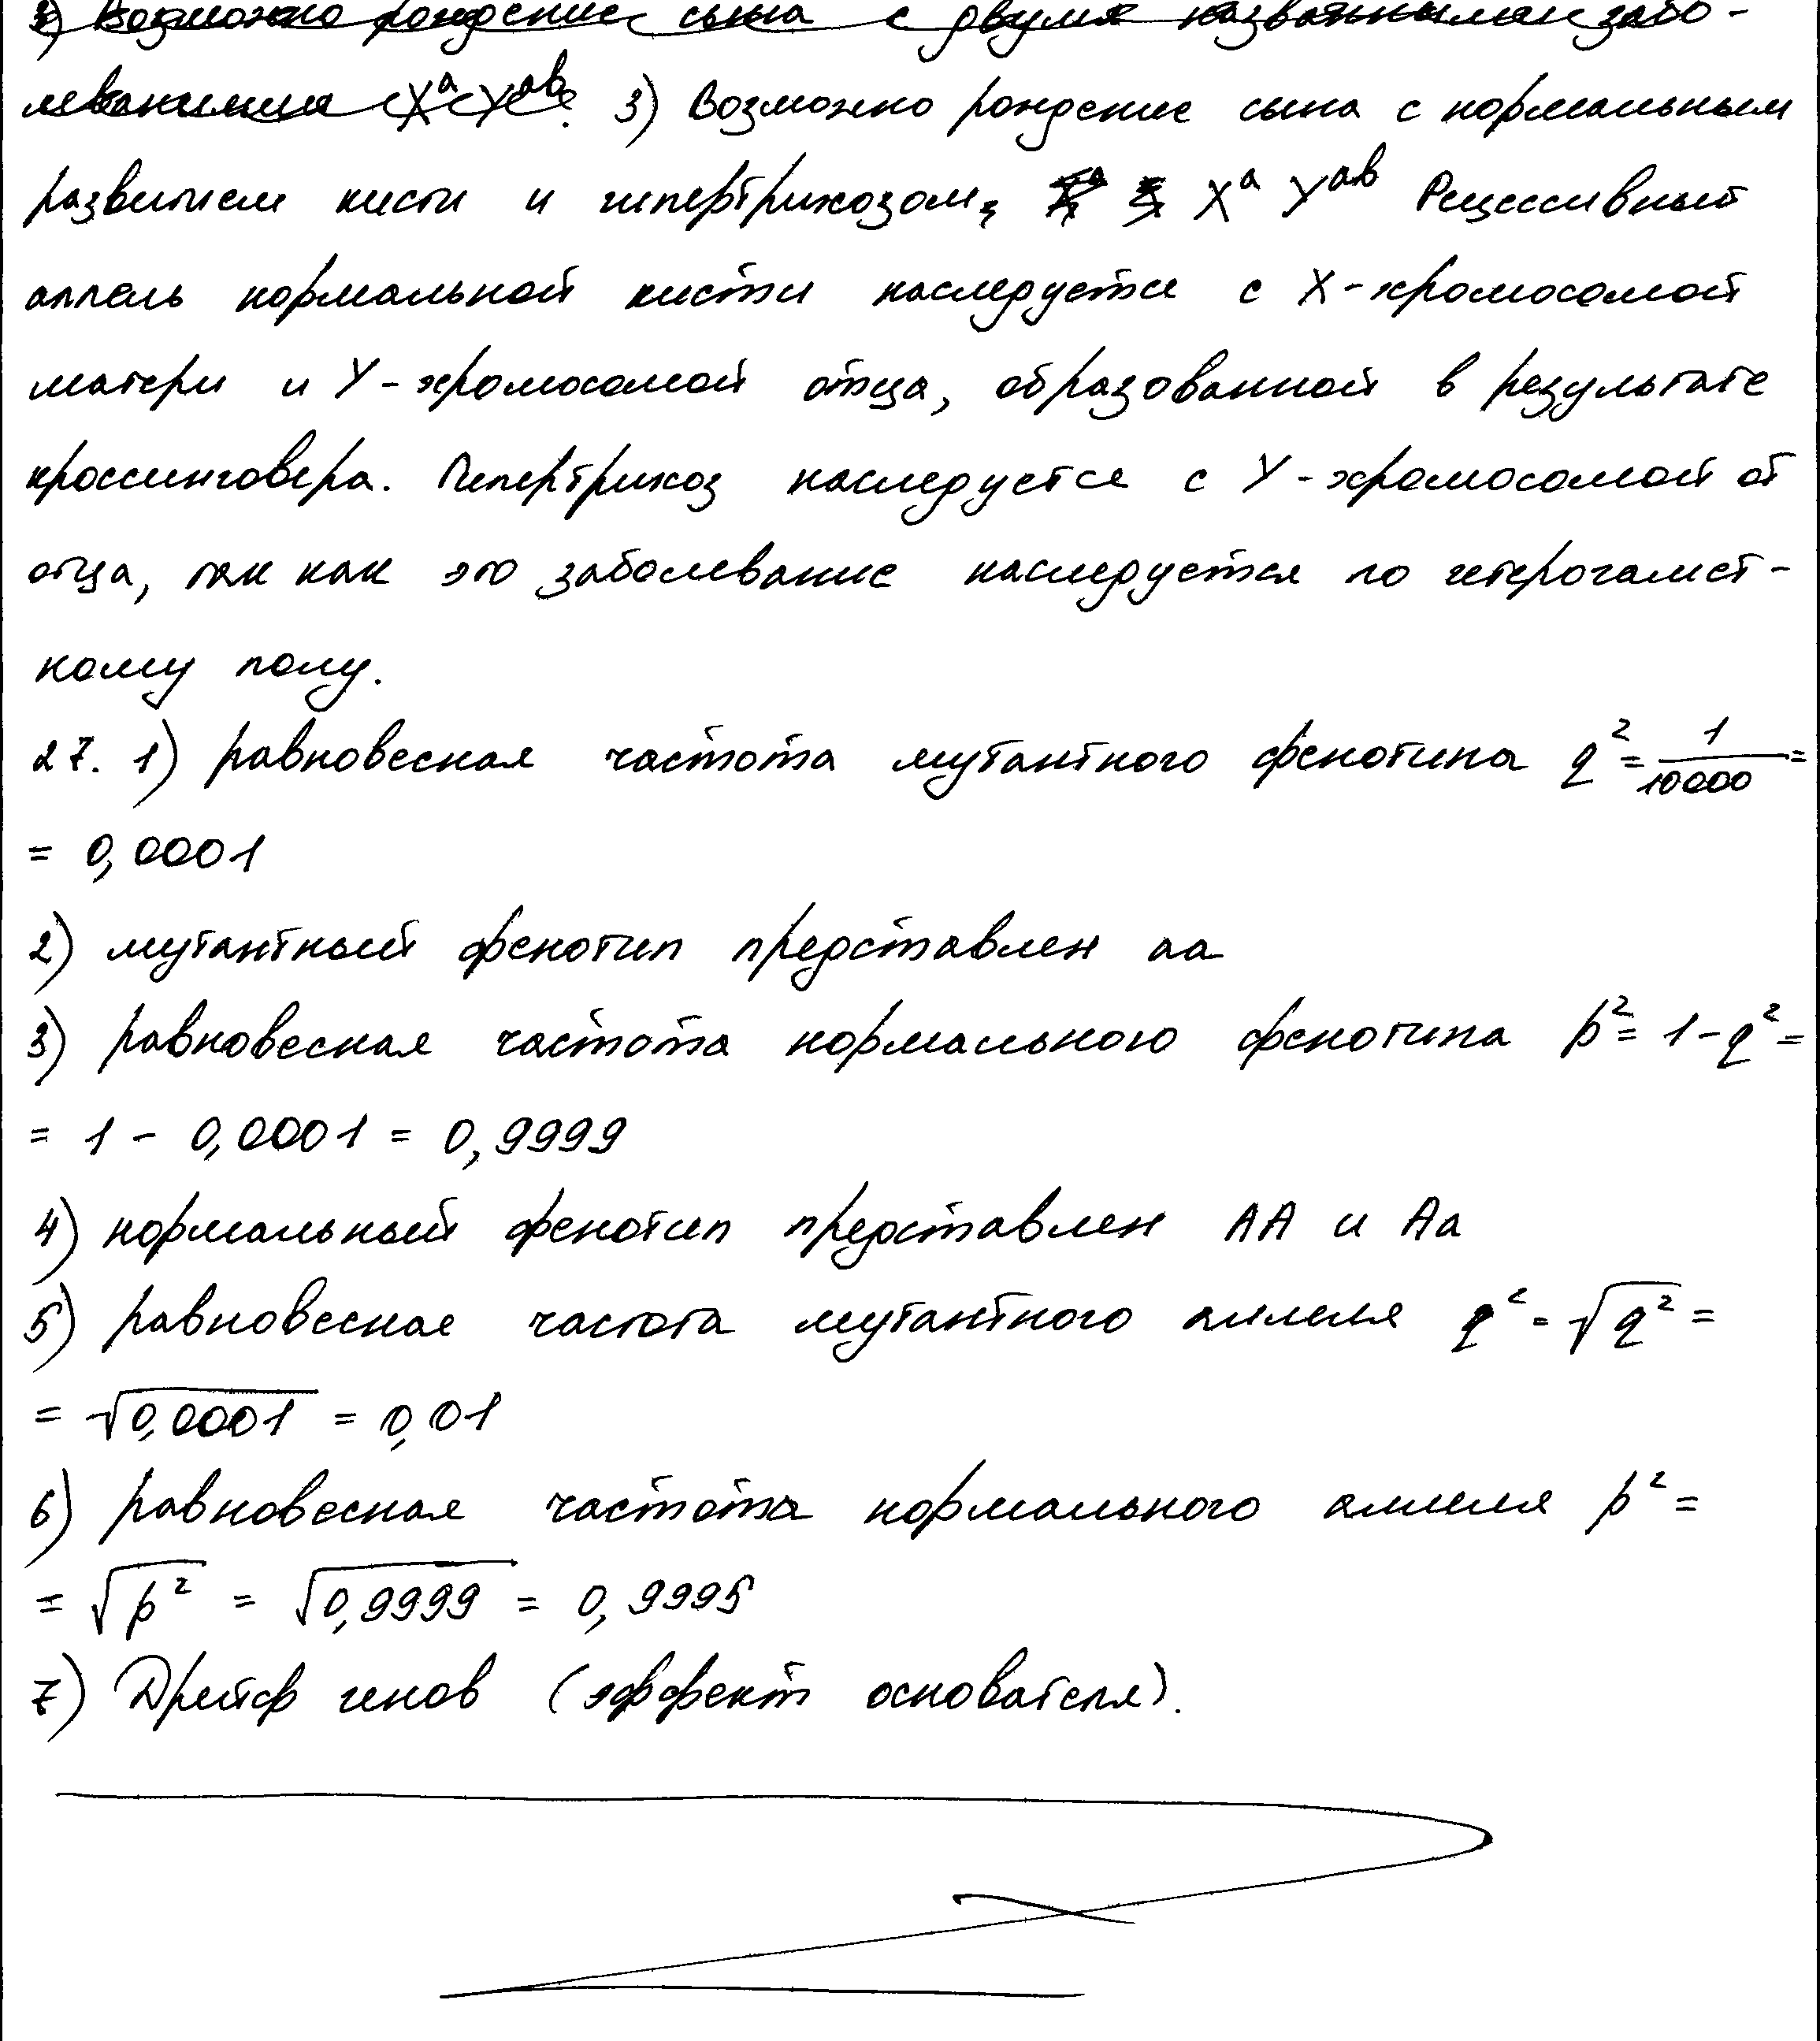 2) Возможно рождение сына с двумя названными забо-
леваниями XᵃYᵃᵇ. 3) Возможно рождение сына с нормальным
развитием кисти и гипертрихозом, Xᵃ Yᵃᵇ Рецессивный
аллель нормальной кисти наследуется с X-хромосомой
матери и Y-хромосомой отца, образованной в результате
кроссинговера. Гипертрихоз наследуется с Y-хромосомой от
отца, так как это заболевание наследуется по гетерогамет-
ному полу.
27. 1) равновесная частота мутантного фенотипа q² = 1/10000 =
= 0,0001
2) мутантный фенотип представлен aa
3) равновесная частота нормального фенотипа p² = 1 - q² =
= 1 - 0,0001 = 0,9999
4) нормальный фенотип представлен AA и Aa
5) равновесная частота мутантного аллеля q² = √q² =
= √0,0001 = 0,01
6) равновесная частота нормального аллеля p² =
= √p² = √0,9999 = 0,9995
7) Дрейф генов (эффект основателя).